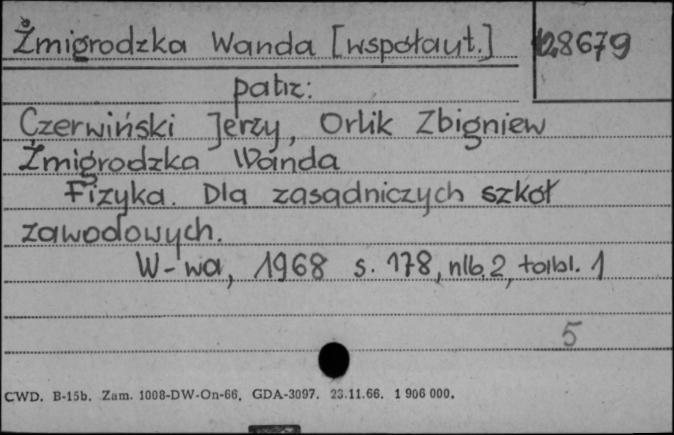 Żmigrodzka Wanda [współaut.] 128679
patrz:
Czerwiński Jerzy, Orlik Zbigniew
Żmigrodzka Wanda
Fizyka. Dla zasadniczych szkół
zawodowych.
W-wa, 1968 s. 178, nlb. 2, tabl. 1
5
CWD. B-15b. Zam. 1008-DW-On-66. GDA-3097. 23.11.66. 1 906 000.